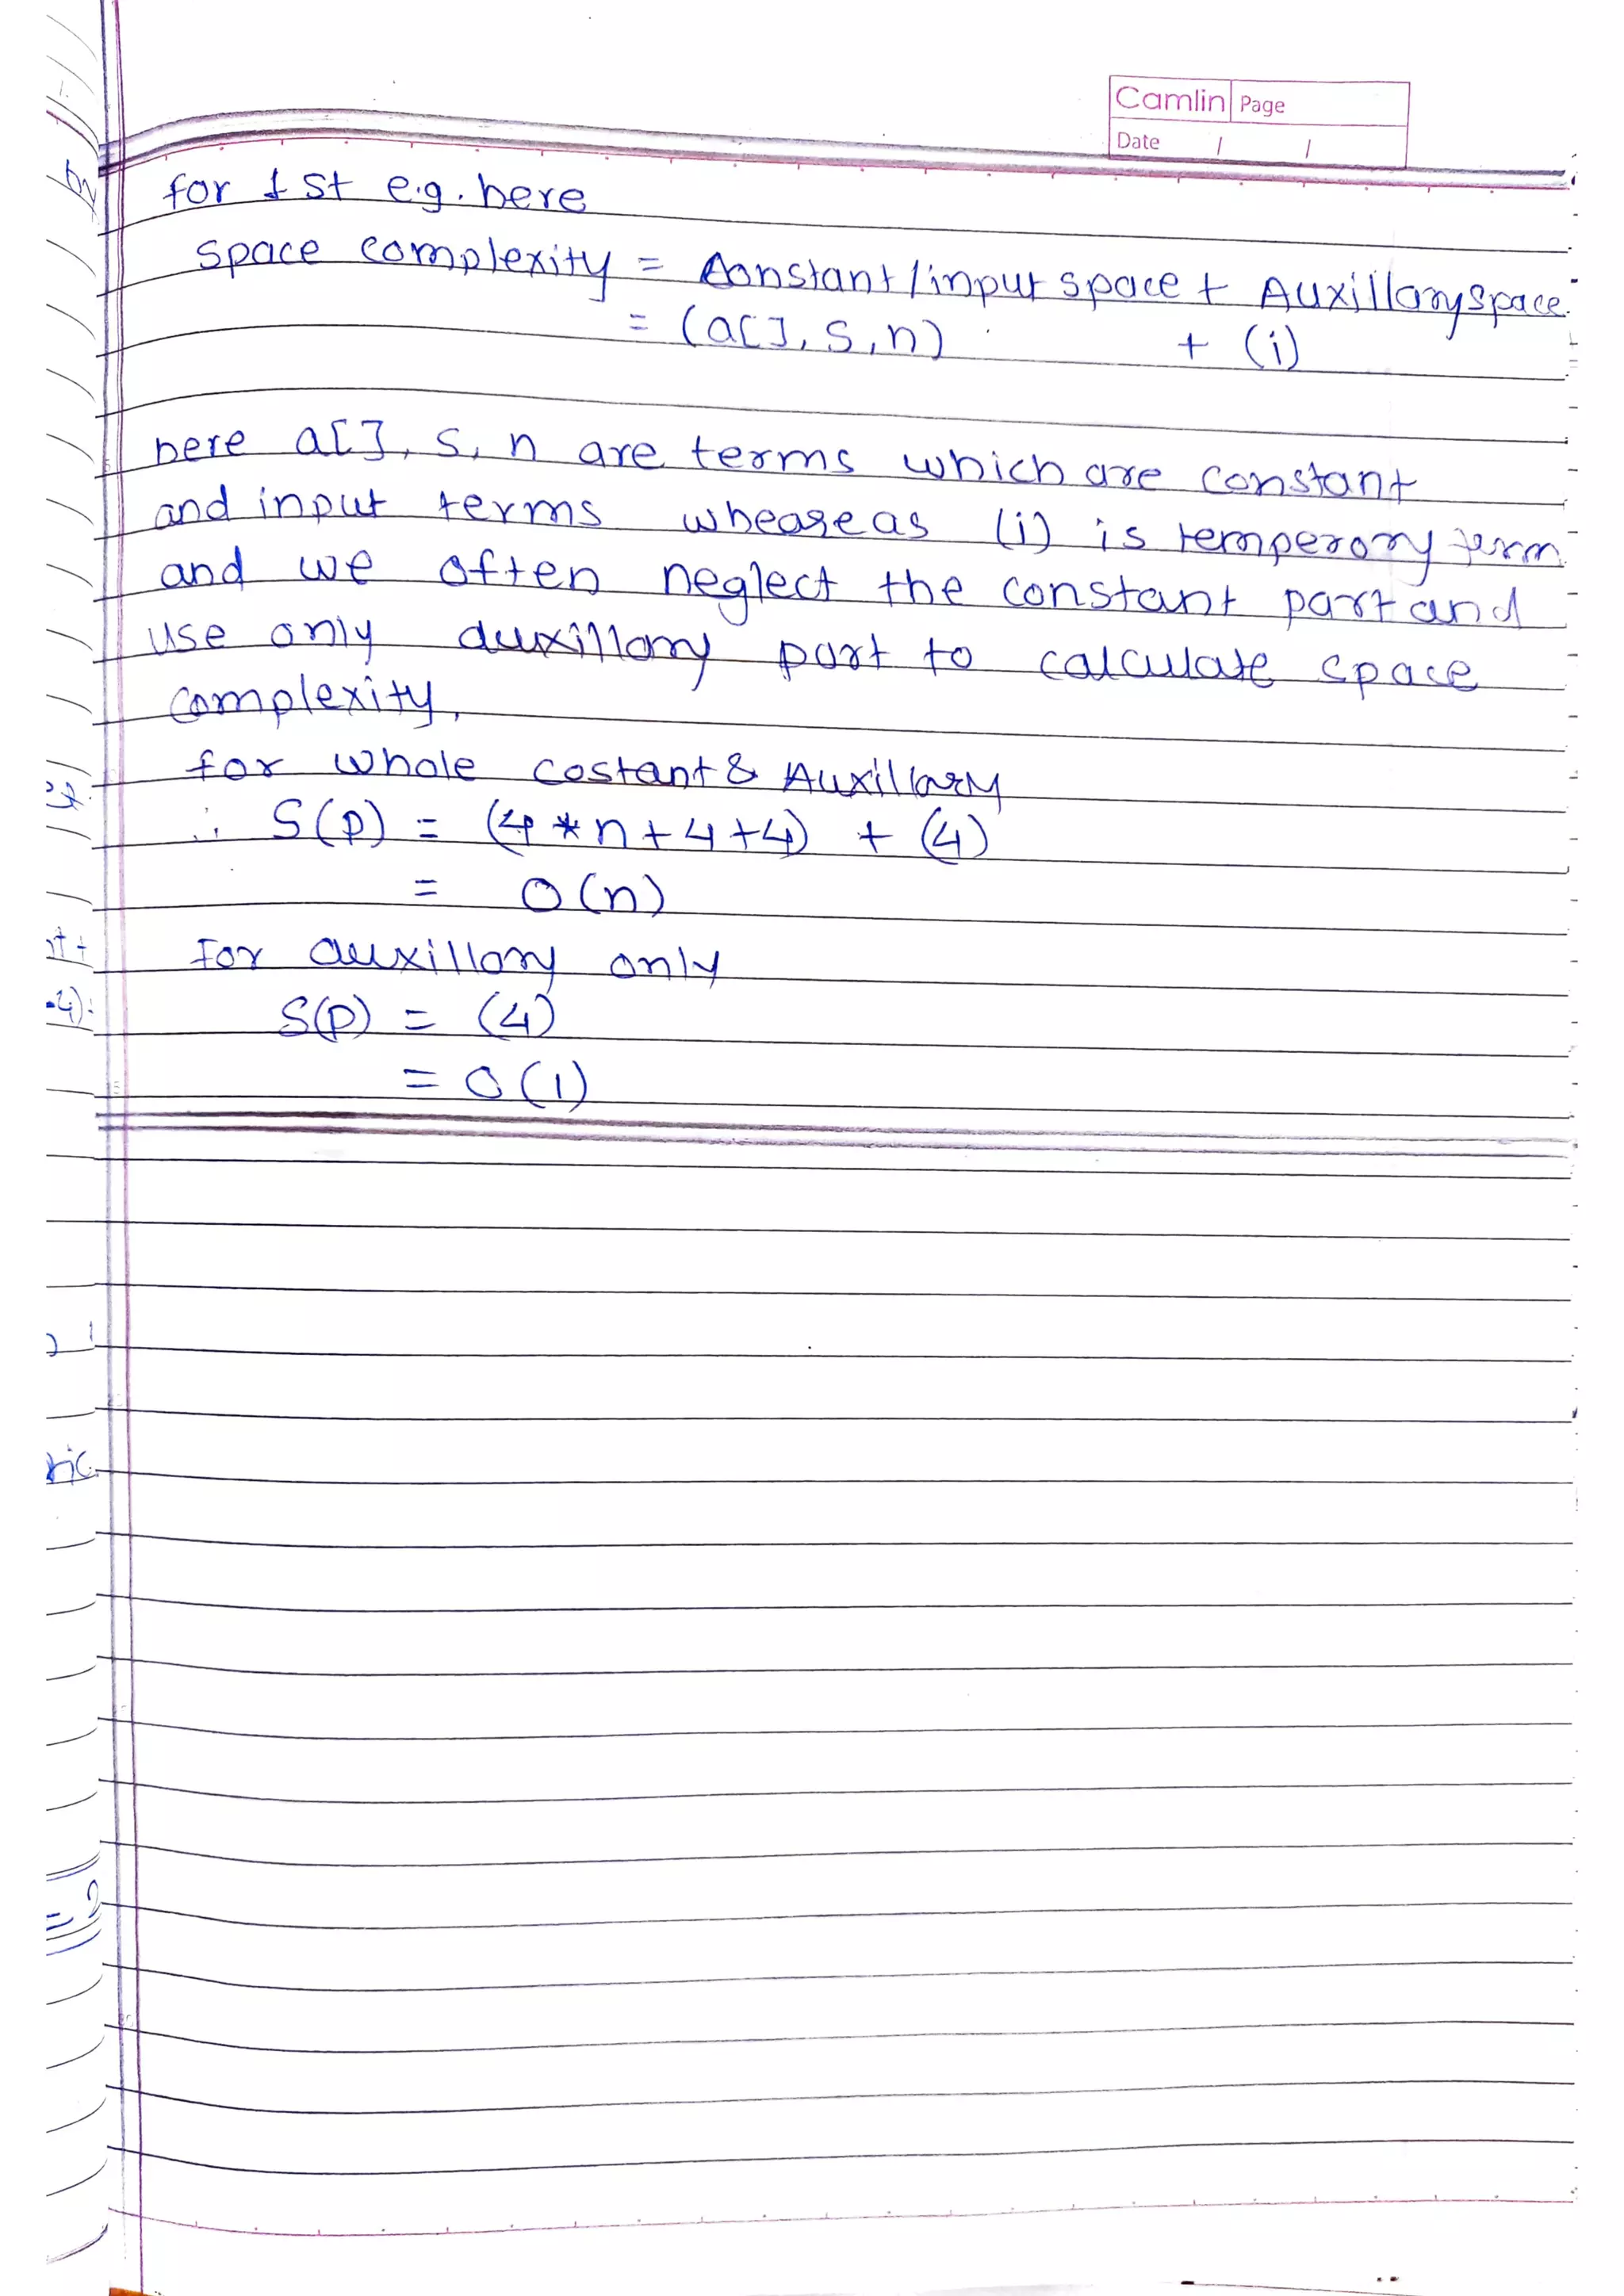 Camlin Page
Date / /
for 1st e.g. here
space complexity = Constant/input space + Auxillary space
= (a[], s, n) + (i)
here a[], s, n are terms which are constant
and input terms wheareas (i) is temperory term
and we often neglect the constant part and
use only auxillary part to calculate space
complexity,
for whole costant & Auxillary
∴ S(p) = (4*n+4+4) + (4)
= O(n)
For auxillary only
S(p) = (4)
= O(1)